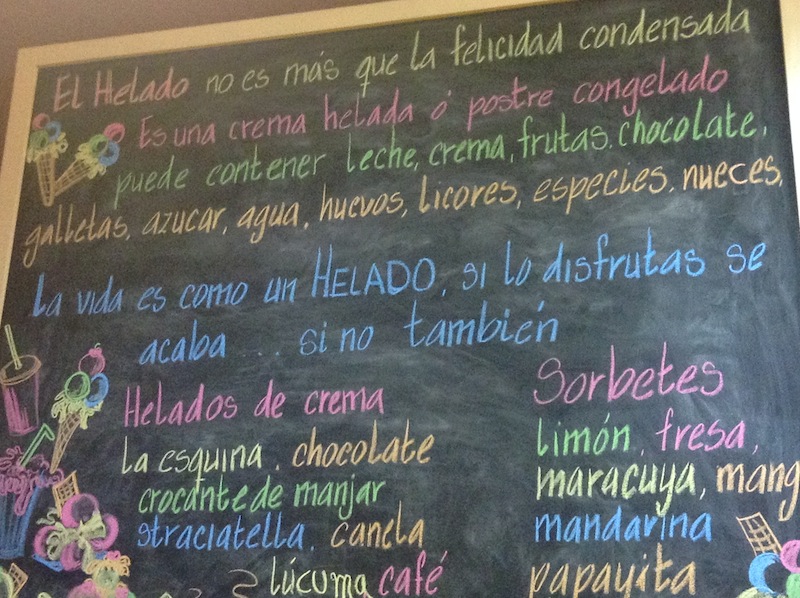 El Helado no es más que la felicidad condensada
Es una crema helada ó postre congelado
puede contener leche, crema, frutas. chocolate,
galletas, azucar, agua, huevos, licores, especies. nueces,
La vida es como un HELADO, si lo disfrutas se
acaba ... si no también
Helados de crema
La esquina, chocolate
crocante de manjar
straciatella, canela
lúcuma café
Sorbetes
limón, fresa,
maracuya, mang
mandarina
papayita